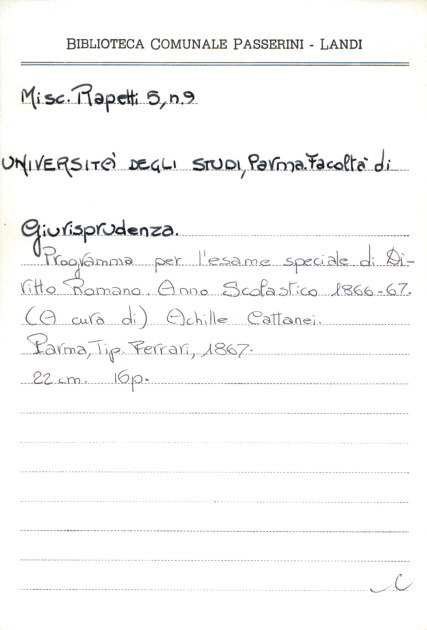 BIBLIOTECA COMUNALE PASSERINI - LANDI
Misc. Rapetti 5, n. 9
UNIVERSITÀ DEGLI STUDI, Parma. Facoltà di
Giurisprudenza.
Programma per l'esame speciale di Di-
ritto Romano. Anno Scolastico 1866-67.
(A cura di) Achille Cattanei.
Parma, Tip. Ferrari, 1867.
22 cm. 16 p.
C